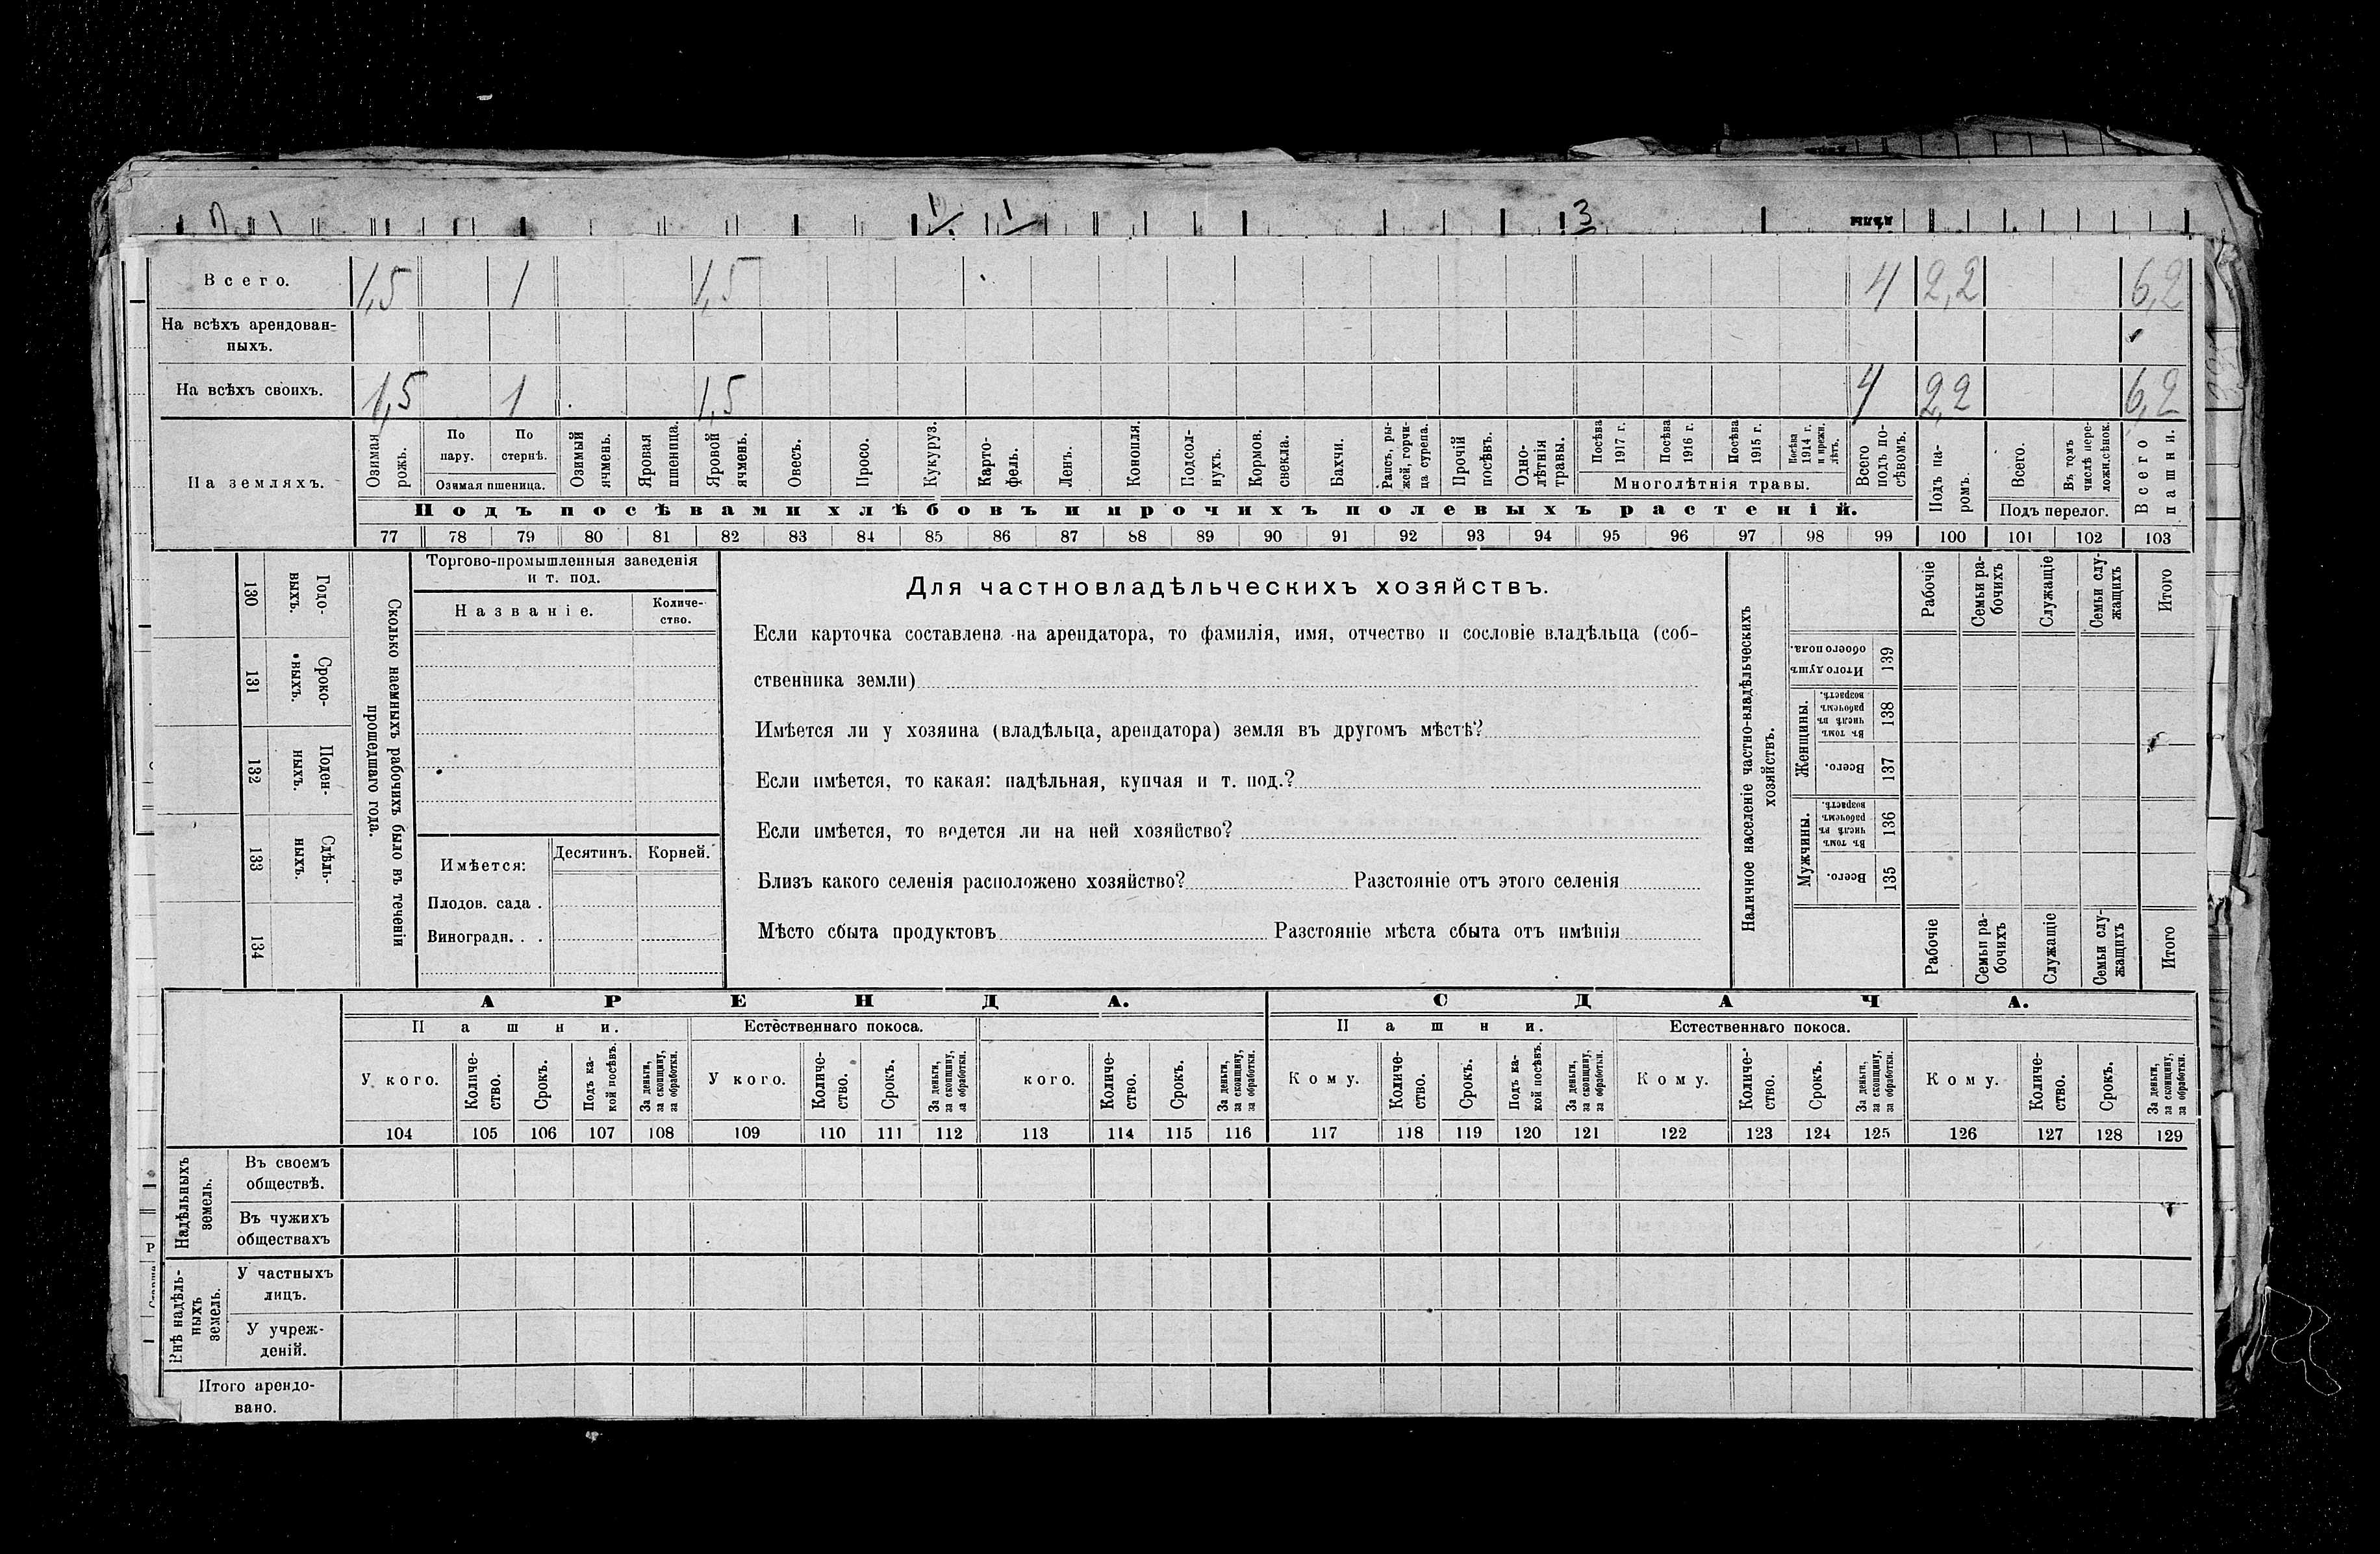 1 1 3
Всего. 1,5 1 1,5 4 2,2 6,2
На всѣхъ арендован-
ныхъ.
На всѣхъ своихъ. 1,5 1 1,5 4 2,2 6,2
На земляхъ.
Озимая рожь.
По пару.
По стернѣ.
Озимая пшеница.
Озимый ячмень.
Яровая пшеница.
Яровой ячмень.
Овесъ.
Просо.
Кукуруз.
Карто-
фель.
Ленъ.
Конопля.
Подсол-
нухъ.
Кормов. свекла.
Бахчи.
Рапсъ, ры-
жей, горчи-
ца сурепа.
Прочій посѣвъ.
Одно-
лѣтнія
травы.
Посѣва 1917 г.
Посѣва 1916 г.
Посѣва 1915 г.
Посѣва 1914 г. и прежн. лѣтъ.
Многолѣтнія травы.
Всего подъ по-
сѣвомъ.
Подъ па-
ромъ.
Всего.
Въ томъ числѣ пере-
ложн.сѣнок.
Подъ перелог.
Всего пашни.
Подъ посѣвами хлѣбовъ и прочихъ полевыхъ растеній.
77 78 79 80 81 82 83 84 85 86 87 88 89 90 91 92 93 94 95 96 97 98 99 100 101 102 103
Сколько наемныхъ рабочихъ было въ теченіи
прошедшаго года.
Годо-
выхъ.
130
Сроко-
выхъ.
131
Поден-
ныхъ.
132
Сдѣль-
ныхъ.
133
134
Торгово-промышленныя заведенія
и т. под.
Названіе.
Количе-
ство.
Имѣется: Десятинъ. Корней.
Плодов. сада .
Виноградн. . .
Для частновладѣльческихъ хозяйствъ.
Если карточка составлена на арендатора, то фамилія, имя, отчество и сословіе владѣльца (соб-
ственника земли)
Имѣется ли у хозяина (владѣльца, арендатора) земля въ другомъ мѣстѣ?
Если имѣется, то какая: надѣльная, купчая и т. под.?
Если имѣется, то ведется ли на ней хозяйство?
Близъ какого селенія расположено хозяйство? Разстояніе отъ этого селенія
Мѣсто сбыта продуктовъ Разстояніе мѣста сбыта отъ имѣнія
Наличное населеніе частно-владѣльческихъ
хозяйствъ.
Рабочіе
Семьи ра-
бочихъ
Служащіе
Семьи слу-
жащихъ
Итого
Итого душъ
обоего пола.
139
Женщины.
Въ томъ числѣ въ рабочемъ возрастѣ.
138
Всего.
137
Мужчины.
Въ томъ числѣ въ рабочемъ возрастѣ.
136
Всего.
135
Рабочіе
Семьи ра-
бочихъ
Служащіе
Семьи слу-
жащихъ
Итого
АРЕНДА. СДАЧА.
Пашни. Естественнаго покоса. Пашни. Естественнаго покоса.
У кого.
Количе-
ство.
Срокъ.
Подъ ка-
кой посѣвъ.
За деньги,
за скопщину,
за обработки.
У кого.
Количе-
ство.
Срокъ.
За деньги,
за скопщину,
за обработки.
кого.
Количе-
ство.
Срокъ.
За деньги,
за скопщину,
за обработки.
Кому.
Количе-
ство.
Срокъ.
Подъ ка-
кой посѣвъ.
За деньги,
за скопщину,
за обработки.
Кому.
Количе-
ство.
Срокъ.
За деньги,
за скопщину,
за обработки.
Кому.
Количе-
ство.
Срокъ.
За деньги,
за скопщину,
за обработки.
104 105 106 107 108 109 110 111 112 113 114 115 116 117 118 119 120 121 122 123 124 125 126 127 128 129
Надѣльныхъ
земель.
Въ своемъ
обществѣ.
Въ чужихъ
обществахъ
Внѣ надѣль-
ныхъ
земель.
У частныхъ
лицъ.
У учреж-
деній.
Итого арендо-
вано.